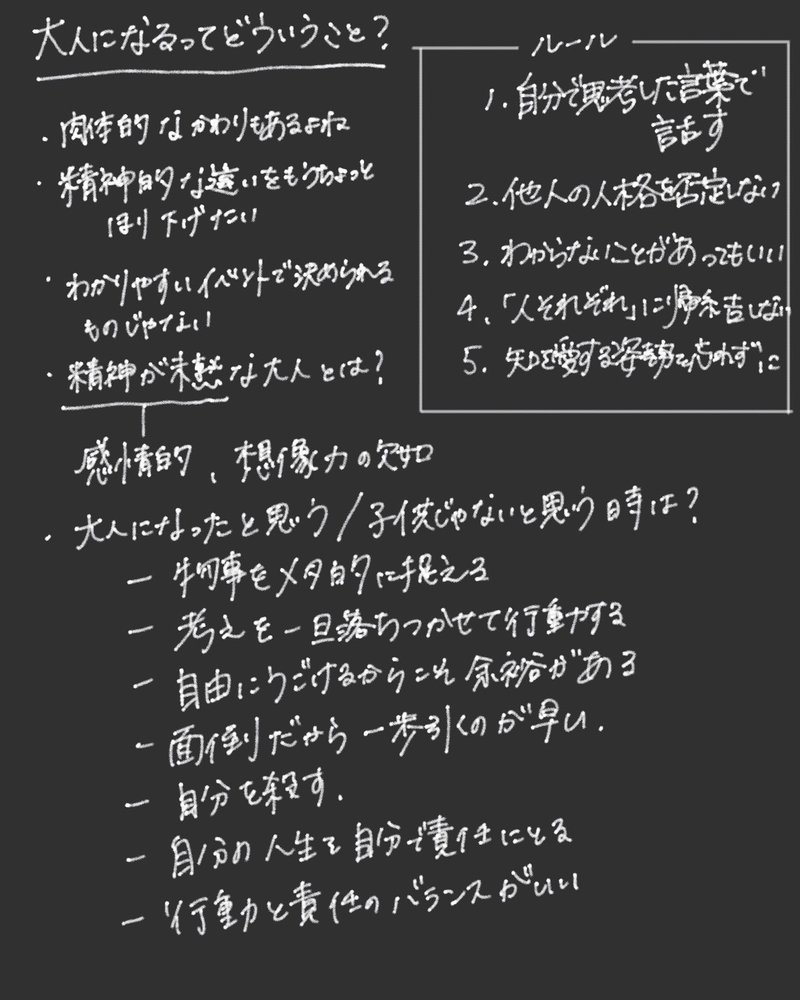 大人になるってどういうこと?
・肉体的なかわりもあるよね
・精神的な違いをもうちょっと
ほり下げたい
・わかりやすいイベントで決められる
ものじゃない
・精神が未熟な大人とは?
感情的、想像力の欠如
ルール
1. 自分で思考した言葉で
話す
2. 他人の人格を否定しない
3. わからないことがあってもいい
4. 「人それぞれ」に帰結しない
5. 知を愛する姿勢を忘れずに
・大人になったと思う/子供じゃないと思う時は?
― 物事をメタ的に捉える
― 考えを一旦落ちつかせて行動する
― 自由にうごけるからこそ余裕がある
― 面倒だから一歩引くのが早い.
― 自分を殺す.
― 自分の人生を自分で責任にとる
― 行動と責任のバランスがいい